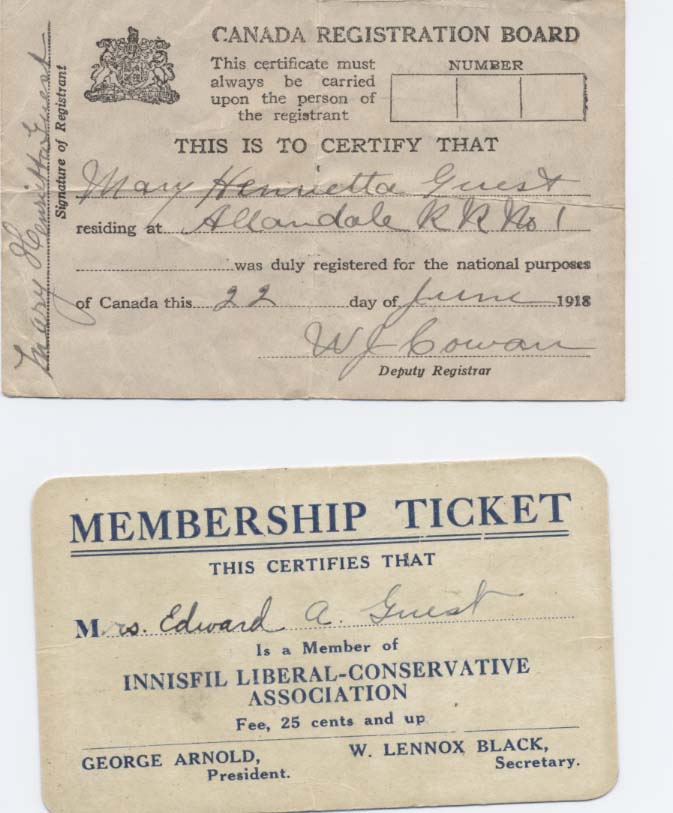 CANADA REGISTRATION BOARD
This certificate must
always be carried
upon the person of
the registrant
NUMBER
THIS IS TO CERTIFY THAT
Mary Henrietta Guest
residing at Allandale R R No 1
was duly registered for the national purposes
of Canada this 22 day of June 1918
W J Cowan
Deputy Registrar
Signature of Registrant
Mary Henrietta Guest
MEMBERSHIP TICKET
THIS CERTIFIES THAT
Mrs. Edward A. Guest
Is a Member of
INNISFIL LIBERAL-CONSERVATIVE
ASSOCIATION
Fee, 25 cents and up
GEORGE ARNOLD,
President.
W. LENNOX BLACK,
Secretary.